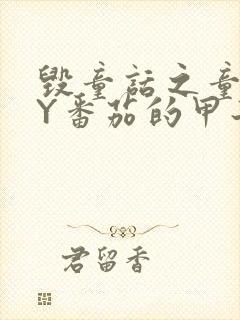 毁童话之童
Y番茄的甲
君留香